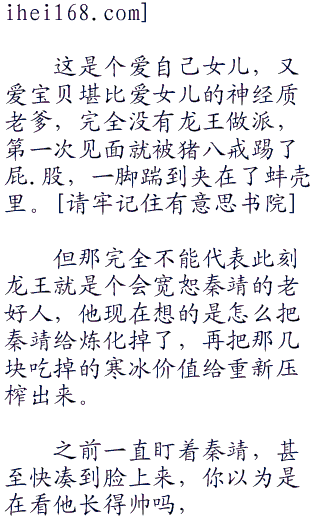 ihei168.com]
这是个爱自己女儿，又
爱宝贝堪比爱女儿的神经质
老爹，完全没有龙王做派，
第一次见面就被猪八戒踢了
屁.股，一脚踹到夹在了蚌壳
里。[请牢记住有意思书院]
但那完全不能代表此刻
龙王就是个会宽恕秦靖的老
好人，他现在想的是怎么把
秦靖给炼化掉了，再把那几
块吃掉的寒冰价值给重新压
榨出来。
之前一直盯着秦靖，甚
至快凑到脸上来，你以为是
在看他长得帅吗，